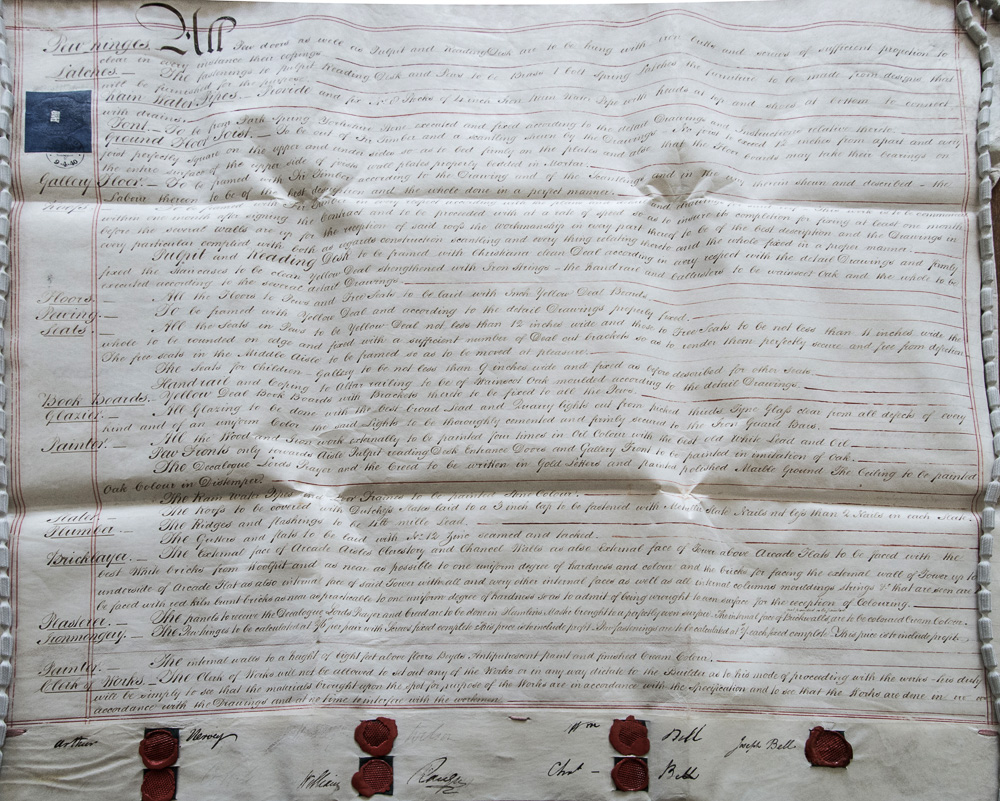 Pew hinges. All Pew doors as well as Pulpit and Reading Desk are to be hung with iron butts and screws of sufficient projection to
clear in every instance their cappings.
Latches. — The fastenings to Pulpit Reading Desk and Pews to be Brass 1 bolt Spring Latches the furniture to be made from designs that
will be furnished for the purpose.
Rain Water Pipes. Provide and fix No. 8 Stacks of 4 inch Iron Rain Water Pipe with heads at top and shoes at bottom to connect
with drains.
Font. — To be from Park Spring Yorkshire Stone executed and fixed according to the detail Drawings and Instructions relative thereto.
Ground Floor Joist. — To be out of Fir Timber and a scantling shewn by the Drawings. No joist to exceed 12 inches from apart and every
joist perfectly square on the upper and under sides so as to bed firmly on the plates and also that the Floor boards may take their bearings on
the entire surface of the upper side of joists and plates properly bedded in Mortar.
Gallery Floor. — To be framed with Fir Timber according to the Drawing and of the Scantlings and in the way therein shewn and described — the
Labour thereon to be of the best description and the whole done in a proper manner.
within one month
before the several walls are up for the reception of said roofs the workmanship in every part thereof to be of the best description and the Drawings in
every particular complied with both as regards construction, scantling and every thing relating thereto and the whole fixed in a proper manner.
Pulpit and Reading Desk to be framed with Christiana clean Deal according in every respect with the detail Drawings and firmly
fixed the Staircases to be clean Yellow Deal strengthened with Iron Strings — the handrail and Ballusters to be wainscot Oak and the whole to be
executed according to the several detail Drawings.
Floors. — All the Floors to Pews and Free Seats to be laid with Inch Yellow Deal Boards.
Pewing. — To be framed with Yellow Deal and according to the detail Drawings properly fixed.
Seats. — All the Seats in Pews to be Yellow Deal not less than 12 inches wide and those to Free Seats to be not less than 11 inches wide the
whole to be rounded on edge and fixed with a sufficient number of Deal cut brackets so as to render them perfectly secure and free from deflection
The free seats in the Middle Aisle to be framed so as to be moved at pleasure.
The Seats for children — Gallery to be not less than 9 inches wide and fixed as before described for other Seats.
Handrail and Coping to Altar railing to be of Wainscot Oak moulded according to the detail Drawings.
Book Boards. Yellow Deal Book Boards with Brackets thereto to be fixed to all the Pews.
Glazier. — All Glazing to be done with the best broad Lead and Quarry lights cut from picked thirds Tyne Glass clear from all defects of every
kind and of an uniform Color the said Lights to be thoroughly cemented and firmly secured to the Iron Guard Bars.
Painter. — All the Wood and Iron work externally to be painted four times in Oil Colour with the best old White Lead and Oil.
Pew Fronts only towards Aisle Pulpit reading Desk Entrance Doors and Gallery Front to be painted in imitation of Oak.
The Decalogue Lords Prayer and the Creed to be written in Gold Letters and painted polished Marble Ground The Ceiling to be painted
Oak Colour in Distemper.
The Rain Water Pipes and Frames to be painted Stone Colour.
Slater. — The roofs to be covered with Dutchess Slates laid to a 3 inch lap to be fastened with Metallic Slate Nails not less than 2 Nails in each Slate.
Plumber. — The Ridges and flashings to be 4lb mille Lead.
The Gutters and flats to be laid with No. 13 Zinc seamed and tacked.
Bricklayer. — The External face of Arcade Aisles Clerestory and Chancel Walls as also external face of Tower above Arcade Flats to be faced with the
best White bricks from Woolpit and as near as possible to one uniform degree of hardness and colour and the bricks for facing the external wall of Tower up to
underside of Arcade Flat as also internal face of said Tower with all and every other internal faces as well as all internal columns mouldings strings &c that are seen are
be faced with red kiln burnt bricks as near as practicable to one uniform degree of hardness so as to admit of being wrought to even surface for the reception of Colouring.
Plasterer. — The panels to receive the Decalogue Lords Prayer and Creed are to be done in Keenes Plaster brought to a perfectly even surface. The internal face of Brickwall are to be coloured Cream Colour.
Ironmongery. — The Pew hinges to be calculated at per pair with Screws fixed complete this price is to include profit. Pew fastenings are to be calculated at each fixed complete This price is to include profit.
Painter. — The internal walls to a height of Eight feet above floors Boyds Antiputrescent paint and finished Cream Colour.
Clerk of Works. — The Clerk of Works will not be allowed to set out any of the Works or in any way dictate to the Builder as to his mode of proceeding with the works — his duty
will be simply to see that the materials brought upon the spot for purpose of the Works are in accordance with the Specification and to see that the Works are done in
accordance with the Drawings and at no time to interfere with the workmen.
Arthur Hervey Wm Bell Joseph Bell
William Ranger Chas — Bell